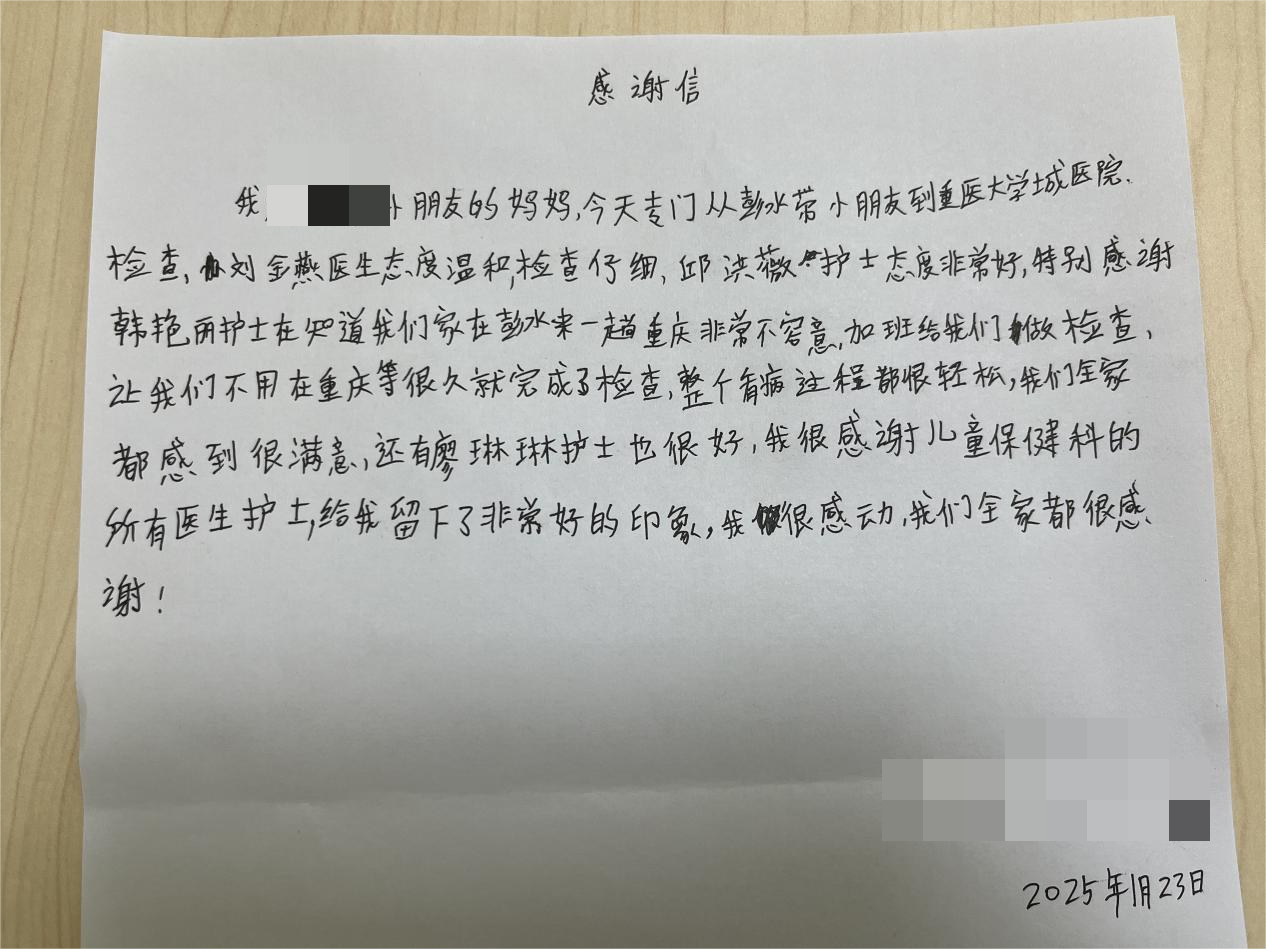 感谢信
我 小朋友的妈妈,今天专门从彭水带小朋友到重医大学城医院.
检查,刘金燕医生态度温和,检查仔细,邱洪薇护士态度非常好,特别感谢
韩艳丽护士在知道我们家在彭水来一趟重庆非常不容意,加班给我们做检查,
让我们不用在重庆等很久就完成了检查,整个看病过程都很轻松,我们全家
都感到很满意,还有廖琳琳护士也很好,我很感谢儿童保健科的
所有医生护士,给我留下了非常好的印象,我很感动,我们全家都很感
谢!
2025年1月23日